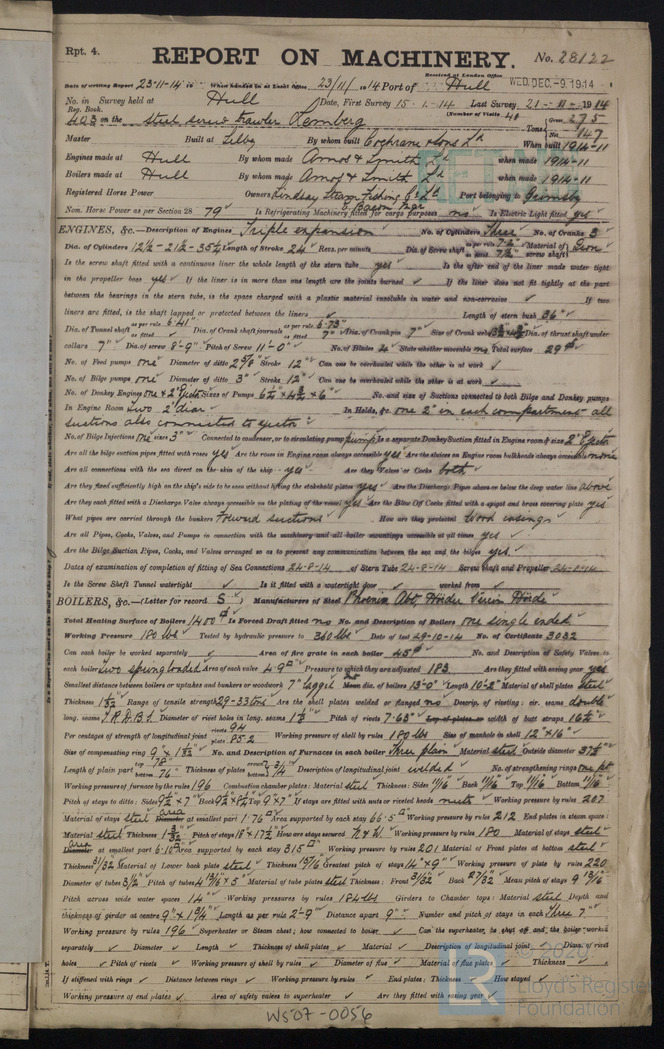 Rpt. 4.
REPORT ON MACHINERY.
No. 28122
Received at London Office
WED. DEC. -9. 1914
Date of writing Report 23-11-14 19 When handed in at Local Office 23/11/ 1914 Port of Hull
No. in Survey held at Hull Date, First Survey 15-1-14 Last Survey 21-11-1914
Reg. Book.
(Number of Visits 40
403 on the steel screw trawler Lemberg Tons Gross 275
Net 147
Master Built at Selby By whom built Cochrane & Sons Ld When built 1914-11
Engines made at Hull By whom made Amos & Smith Ld when made 1914-11
Boilers made at Hull By whom made Amos & Smith Ld when made 1914-11
Registered Horse Power Owners Lindsay Steam Fishing Co Ld Port belonging to Grimsby
Nom. Horse Power as per Section 28 79 Is Refrigerating Machinery fitted for cargo purposes no Is Electric Light fitted yes
ENGINES, &c.—Description of Engines Triple expansion No. of Cylinders Three No. of Cranks 3
Dia. of Cylinders 12½-21½-35½ Length of Stroke 24 Revs. per minute Dia. of Screw shaft as per rule as fitted 7½" Material of screw shaft Iron
Is the screw shaft fitted with a continuous liner the whole length of the stern tube yes Is the after end of the liner made water tight
in the propeller boss yes If the liner is in more than one length are the joints burned ✓ If the liner does not fit tightly at the part
between the bearings in the stern tube, is the space charged with a plastic material insoluble in water and non-corrosive ✓ If two
liners are fitted, is the shaft lapped or protected between the liners ✓ Length of stern bush 36"
Dia. of Tunnel shaft as per rule 6.41" as fitted Dia. of Crank shaft journals as per rule 6.73" as fitted 7" Dia. of Crank pin 7" Size of Crank webs Dia. of thrust shaft under
collars 7" Dia. of screw 8'-9" Pitch of Screw 11'-0" No. of Blades 4 State whether moveable no Total surface 29
No. of Feed pumps one Diameter of ditto 2⅝" Stroke 12" Can one be overhauled while the other is at work ✓
No. of Bilge pumps one Diameter of ditto 3" Stroke 12" Can one be overhauled while the other is at work ✓
No. of Donkey Engines one & 2" Ejector Sizes of Pumps No. and size of Suctions connected to both Bilge and Donkey pumps
In Engine Room Two 2" diar In Holds, &c. one 2" in each compartment all
suctions also connected to ejector
No. of Bilge Injections one sizes 3" Connected to condenser, or to circulating pump pump Is a separate Donkey Suction fitted in Engine room & size 2" Ejector
Are all the bilge suction pipes fitted with roses yes Are the roses in Engine room always accessible yes Are the sluices on Engine room bulkheads always accessible none
Are all connections with the sea direct on the skin of the ship yes Are they Valves or Cocks both
Are they fixed sufficiently high on the ship's side to be seen without lifting the stokehold plates yes Are the Discharge Pipes above or below the deep water line above
Are they each fitted with a Discharge Valve always accessible on the plating of the vessel yes Are the Blow Off Cocks fitted with a spigot and brass covering plate yes
What pipes are carried through the bunkers Forward suctions How are they protected Wood casings
Are all Pipes, Cocks, Valves, and Pumps in connection with the machinery and all boiler mountings accessible at all times yes
Are the Bilge Suction Pipes, Cocks, and Valves arranged so as to prevent any communication between the sea and the bilges yes
Dates of examination of completion of fitting of Sea Connections 24-8-14 of Stern Tube 24-8-14 Screw shaft and Propeller 24-8-14
Is the Screw Shaft Tunnel watertight ✓ Is it fitted with a watertight door ✓ worked from ✓
BOILERS, &c.—(Letter for record S) Manufacturers of Steel Phoenix Abt, Hörder Verein Hörde
Total Heating Surface of Boilers 1400 Is Forced Draft fitted no No. and Description of Boilers one single ended
Working Pressure 180 lbs Tested by hydraulic pressure to 360 lbs Date of test 29-10-14 No. of Certificate 3032
Can each boiler be worked separately ✓ Area of fire grate in each boiler 45 No. and Description of Safety Valves to
each boiler Two spring loaded Area of each valve 4.9 Pressure to which they are adjusted 183 Are they fitted with easing gear yes
Smallest distance between boilers or uptakes and bunkers or woodwork 7" lagged dia. of boilers 13'-0" Length 10'-2" Material of shell plates steel
Thickness 1 5/32" Range of tensile strength 29-33 tons Are the shell plates welded or flanged no Descrip. of riveting: cir. seams double
long. seams T.R.D.B.S. Diameter of rivet holes in long. seams Pitch of rivets 7.63" width of butt straps 16½"
Per centages of strength of longitudinal joint rivets 94 plate 85.2 Working pressure of shell by rules 180 lbs Size of manhole in shell 12" x 16"
Size of compensating ring No. and Description of Furnaces in each boiler Three plain Material steel Outside diameter 37½"
Length of plain part top 78" bottom 76" Thickness of plates crown bottom 3/4" Description of longitudinal joint welded No. of strengthening rings
Working pressure of furnace by the rules 196 Combustion chamber plates: Material steel Thickness: Sides 11/16" Back 11/16" Top 11/16" Bottom 11/16"
Pitch of stays to ditto: Sides 9½" x 7" Back 9½" x 8½" Top 9" x 7" If stays are fitted with nuts or riveted heads nuts Working pressure by rules 207
Material of stays steel area at smallest part 1.76 Area supported by each stay 66.5 Working pressure by rules 212 End plates in steam space:
Material steel Thickness 1 3/32" Pitch of stays 18" x 17½" How are stays secured N & W. Working pressure by rules 180 Material of stays steel
area at smallest part 6.10 Area supported by each stay 315 Working pressure by rules 201 Material of Front plates at bottom steel
Thickness 31/32" Material of Lower back plate steel Thickness 15/16" Greatest pitch of stays 14" x 9" Working pressure of plate by rules 220
Diameter of tubes 3½" Pitch of tubes 4 13/16" x 5" Material of tube plates steel Thickness: Front 31/32" Back 27/32" Mean pitch of stays 9 13/16"
Pitch across wide water spaces 14" Working pressures by rules 184 lbs Girders to Chamber tops: Material steel Depth and
thickness of girder at centre 9" x 1¾" Length as per rule 2'-9" Distance apart 9" Number and pitch of stays in each Three 7"
Working pressure by rules 196 Superheater or Steam chest; how connected to boiler ✓ Can the superheater be shut off and the boiler worked
separately ✓ Diameter ✓ Length ✓ Thickness of shell plates ✓ Material ✓ Description of longitudinal joint ✓ Diam. of rivet
holes ✓ Pitch of rivets ✓ Working pressure of shell by rules ✓ Diameter of flue ✓ Material of flue plates ✓ Thickness ✓
If stiffened with rings ✓ Distance between rings ✓ Working pressure by rules ✓ End plates: Thickness ✓ How stayed ✓
Working pressure of end plates ✓ Area of safety valves to superheater ✓ Are they fitted with easing gear ✓
W507-0056
© 2020
Lloyd's Register
Foundation